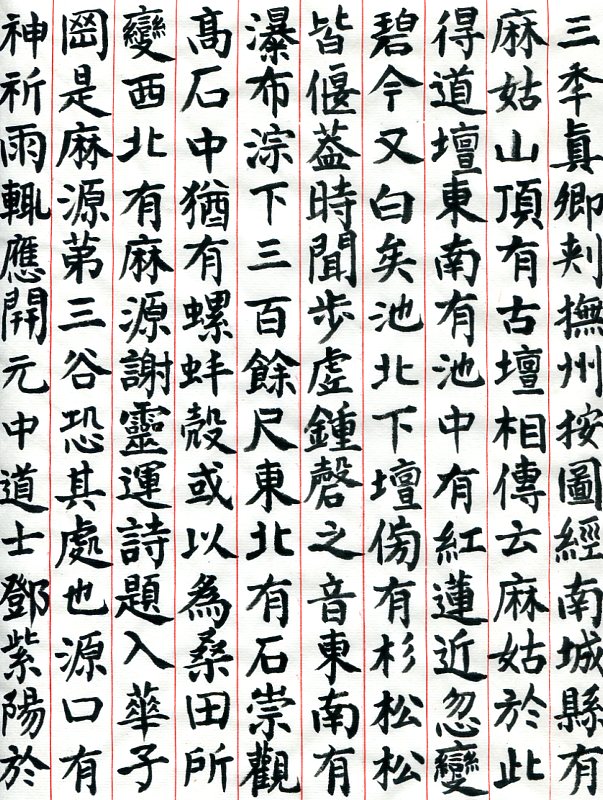 三秊真卿刾撫州按圖經南城縣有
麻姑山頂有古壇相傳云麻姑於此
得道壇東南有池中有紅蓮近忽變
碧今又白矣池北下壇傍有杉松松
皆偃葢時聞步虛鍾磬之音東南有
瀑布淙下三百餘尺東北有石崇觀
髙石中猶有螺蚌殼或以為桑田所
變西北有麻源謝靈運詩題入華子
岡是麻源第三谷恐其處也源口有
神祈雨輒應開元中道士鄧紫陽於